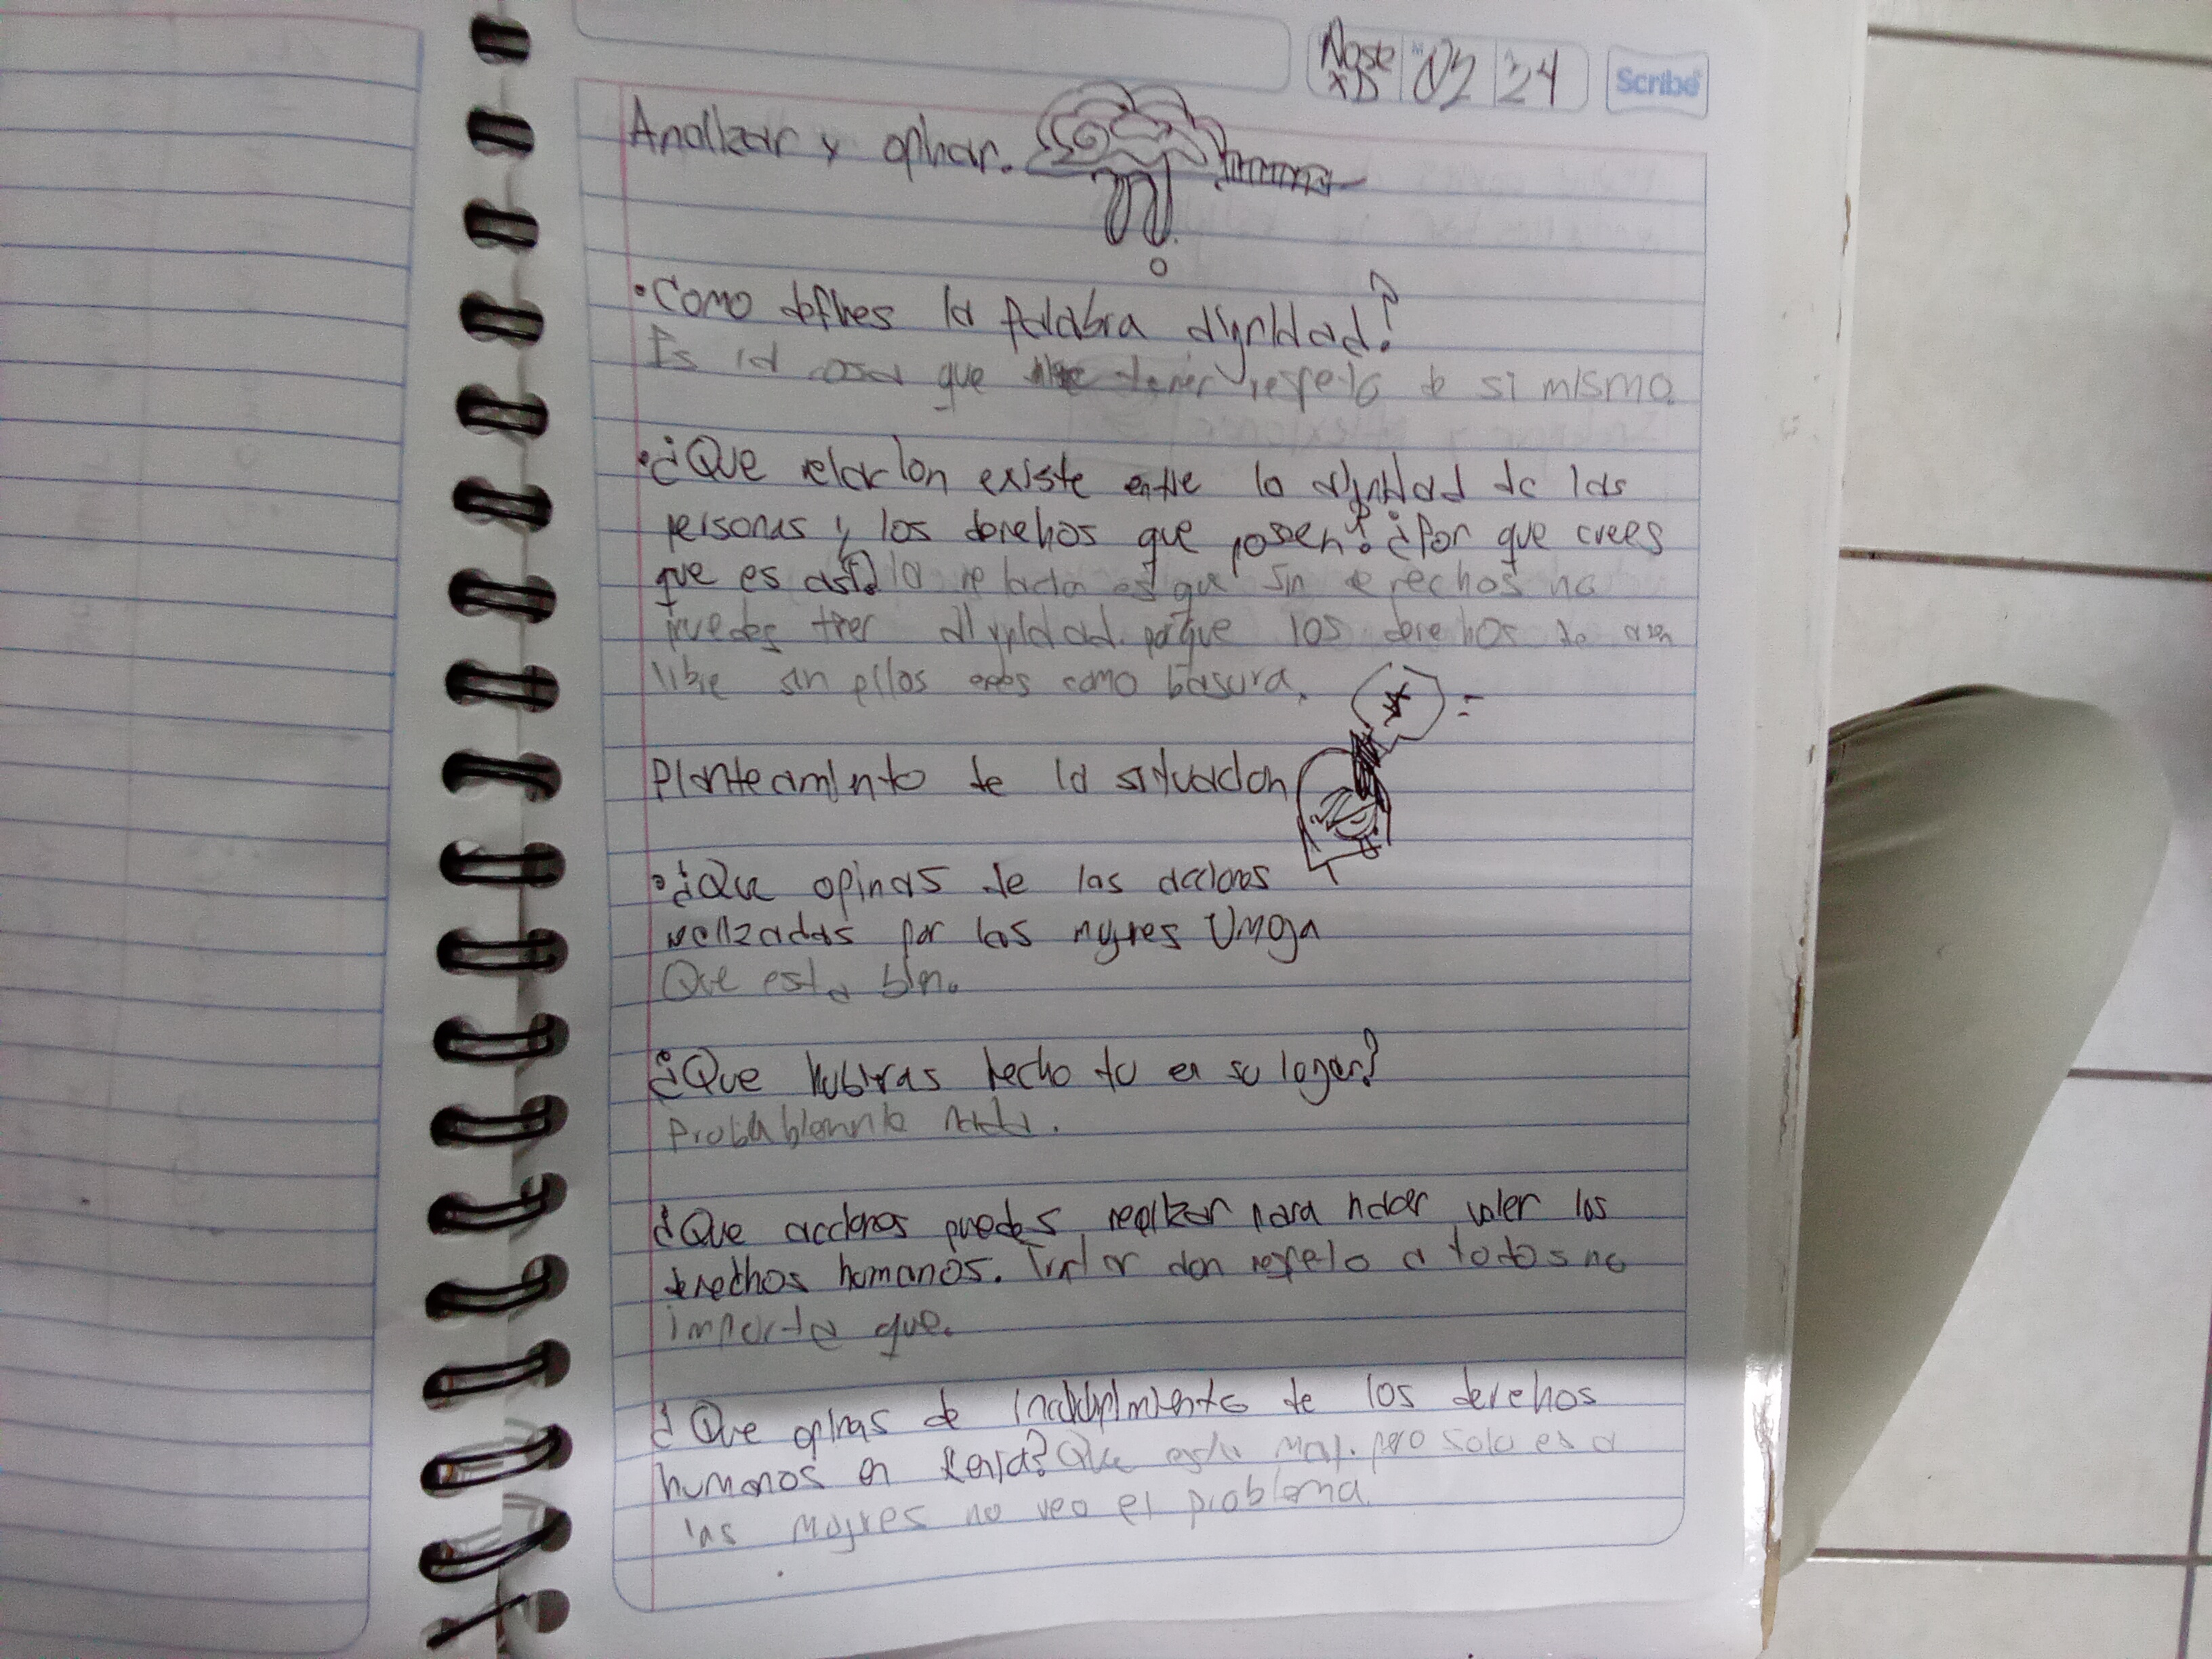 Nose XD 02 24 Scribe
Analizar y opinar.
• Como defines la palabra dignidad?
Es la cosa que tener respeto de si mismo.
• ¿Que relacion existe entre la dignidad de las
personas y los derehos que posen? ¿Por que crees
que es asi? la relacion es que sin derechos no
puedes tner dignidad. porque los derehos te
libre sin ellos eres como basura.
Planteaminto de la situacion
• ¿Que opinas de las acciones
relizadas por las mujres Umoja
Que esta bin.
¿Que hubiras hecho tu en su logar?
Probablemnte nada.
¿Que acciones puedes realizar para hacer valer los
derechos humanos. Tratar con respeto a todos no
importa que.
¿Que opinas de incumplimiento de los derehos
humanos en Kenia? Que esta mal. pero solo es a
las mujres no veo el problema.